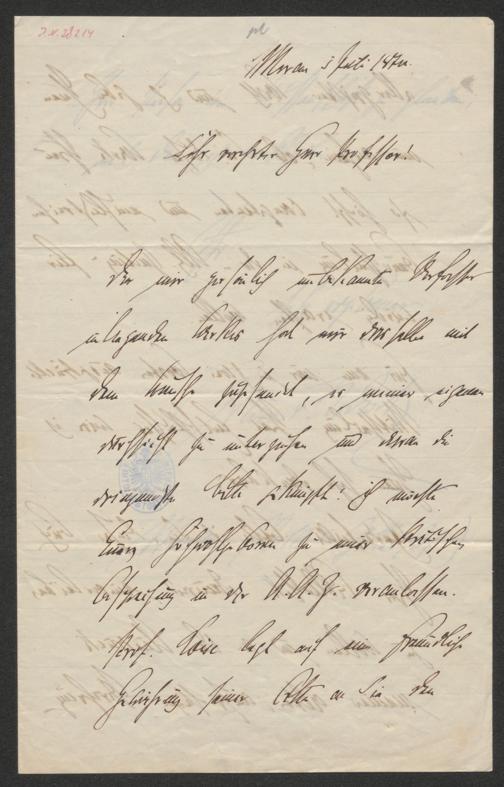 J.N. 28214
Meran 5 Juli 187
Sehr verehrter Herr Professor!
Der mir persönlich unbekannte Verfasser
inliegenden Werkes hat mir dasselbe mit
dem Wunsche zugesandt, es meiner eigenen
Durchsicht zu unterziehen und daran die
dringendste Bitte geknüpft: ich möchte
Euer Hochwohlgeboren zu einer kritischen
Besprechung in der A.A.Z. veranlassen.
Prof. legt auf eine freundliche
seiner Bitte an Sie den